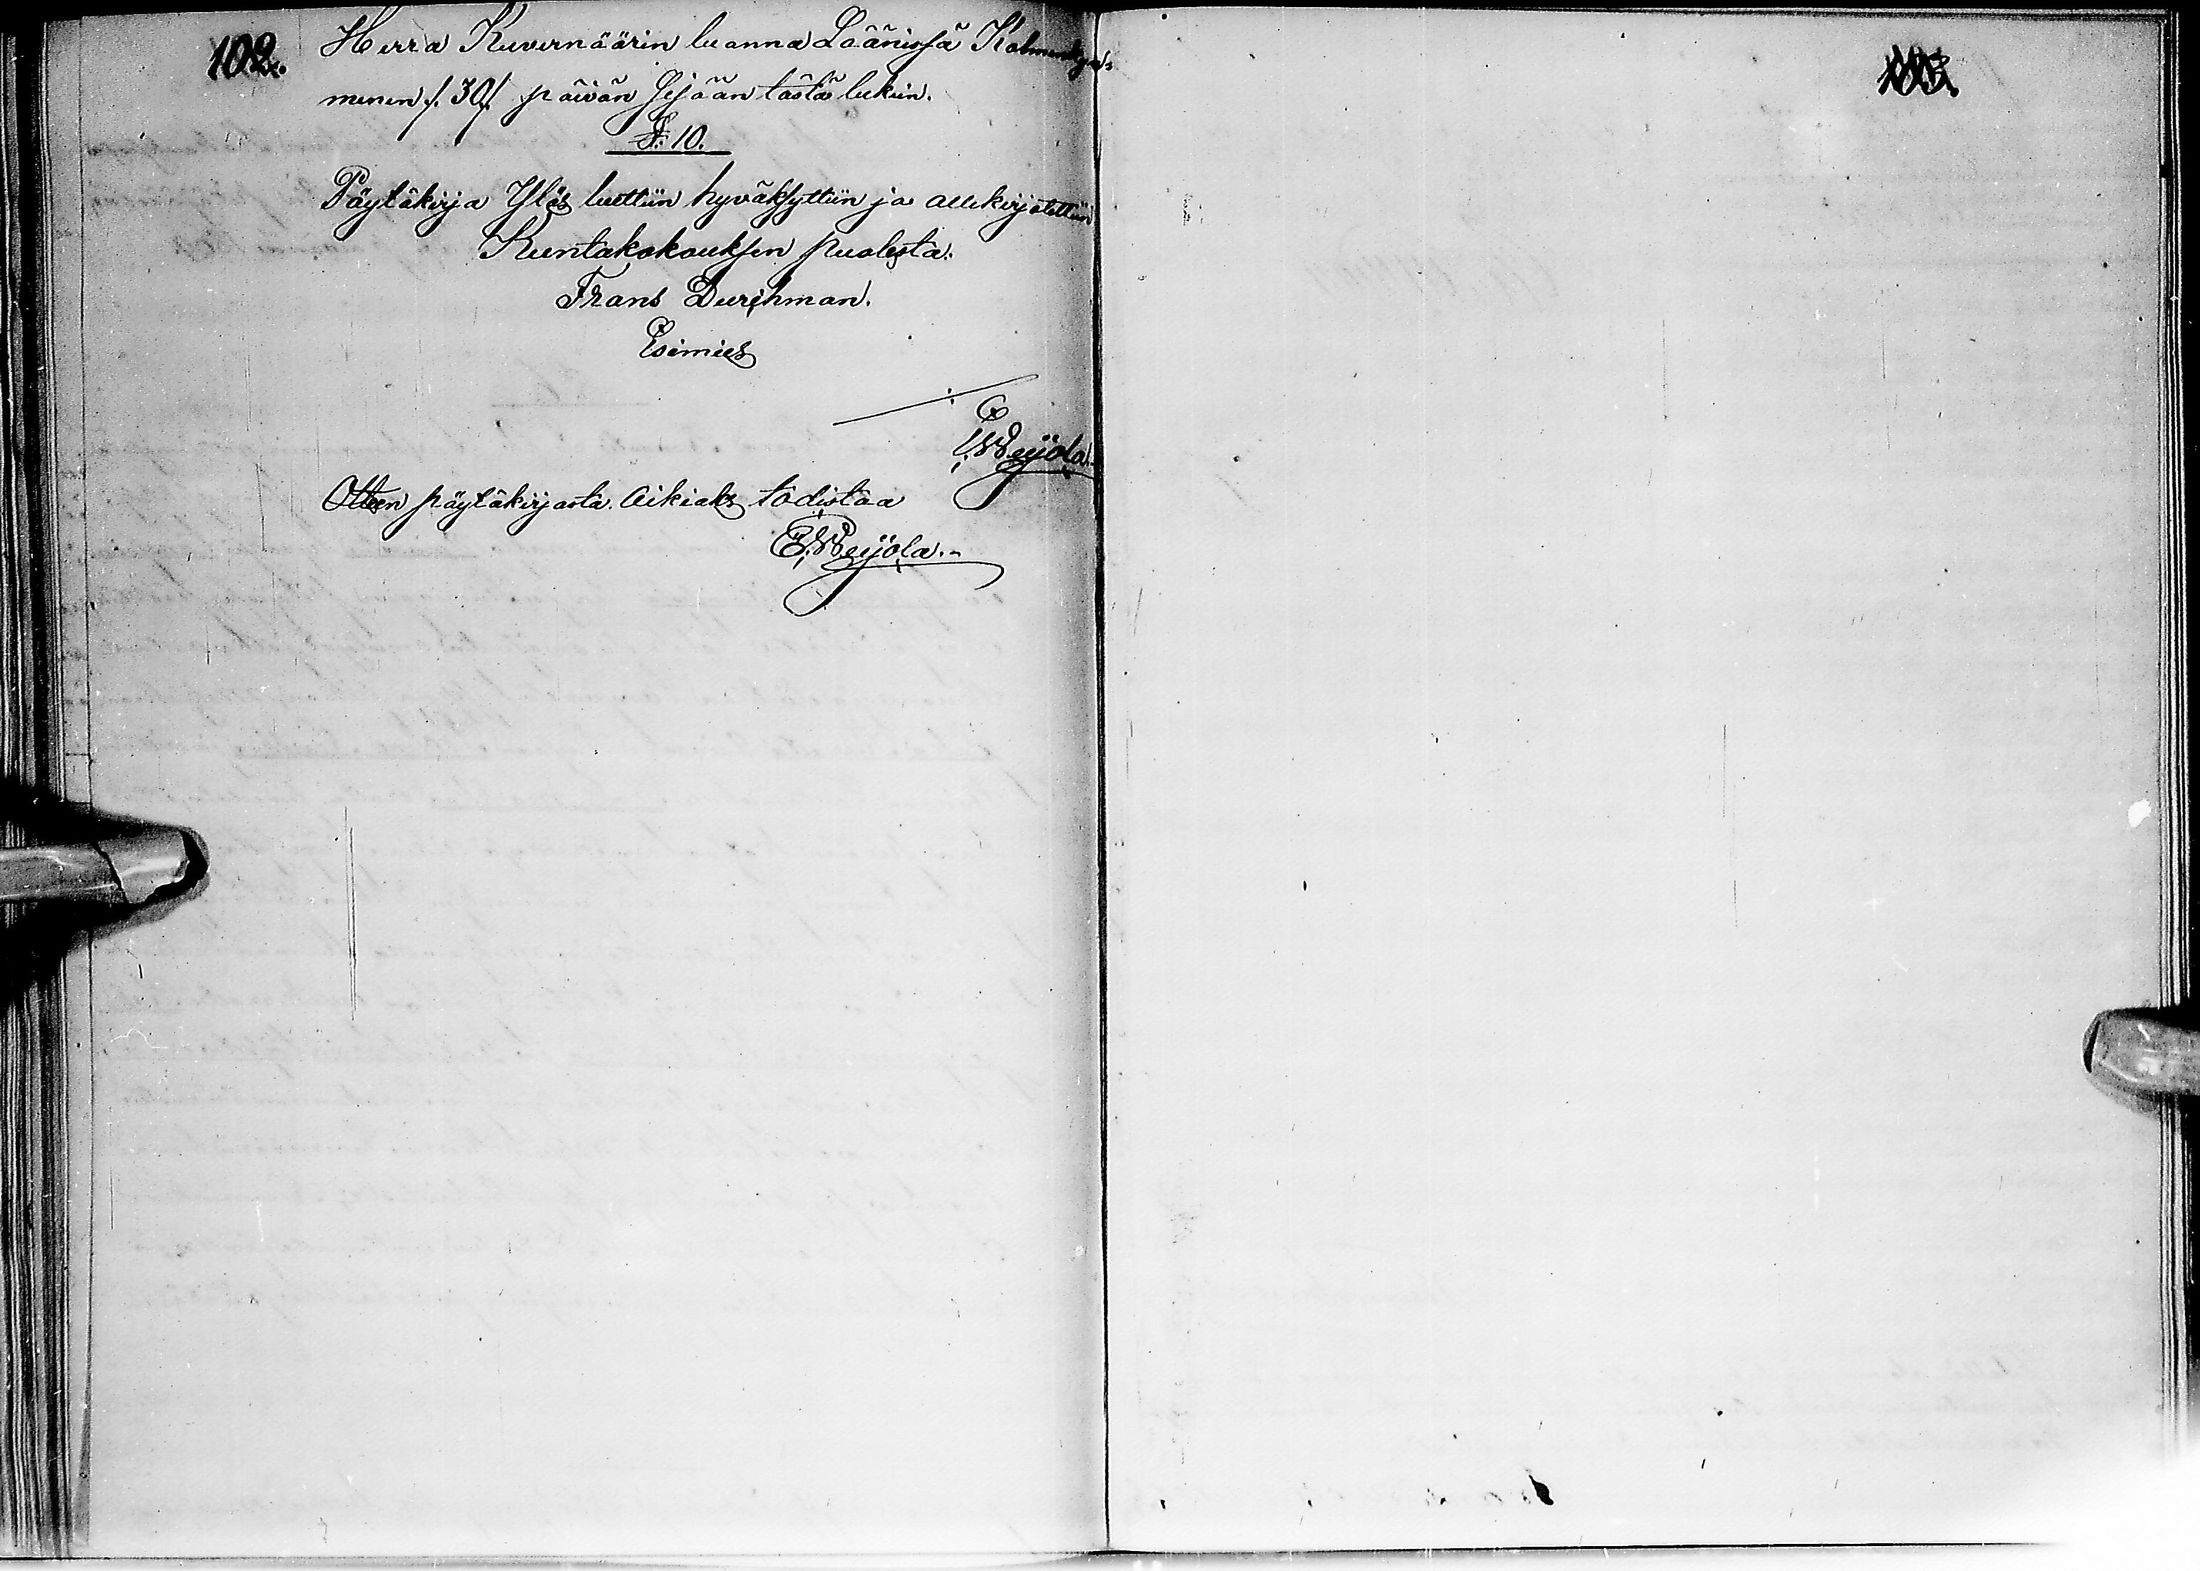 102.
Herra Kuvernöörin luonna Läänissä Kolmenkym=
menen /. 30 ./ päivän sisään tästä lukein.
§. 10.
Pöytäkirja Ylös luettiin hyväksyttiin ja allekirjotettiin
Kuntakokouksen puolesta.
Frans Durchman.
Esimies
E. W. Reijola.
Otteen pöytäkirjasta Oikiaks todistaa
E. W. Reijola.-